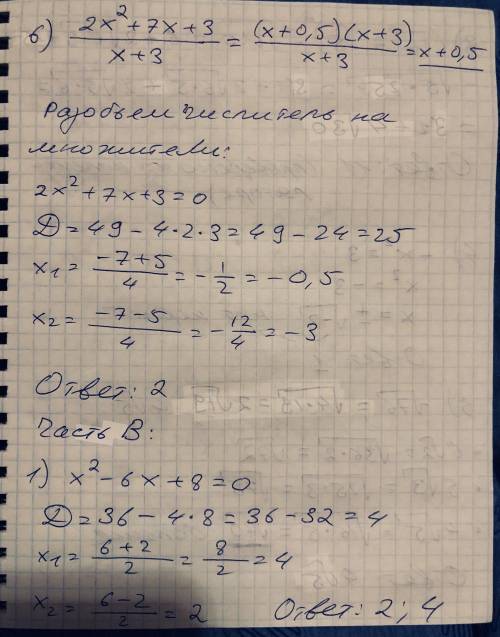 6) (2x²+7x+3)/(x+3) = ((x+0,5)(x+3))/(x+3) = x+0,5
Разобьем числитель на
множители:
2x²+7x+3=0
D=49-4·2·3=49-24=25
x₁= (-7+5)/4 = -1/2 = -0,5
x₂= (-7-5)/4 = -12/4 = -3
Ответ: 2
Часть В:
1) x²-6x+8=0
D=36-4·8=36-32=4
x₁= (6+2)/2 = 8/2 = 4
x₂= (6-2)/2 = 2 Ответ: 2; 4